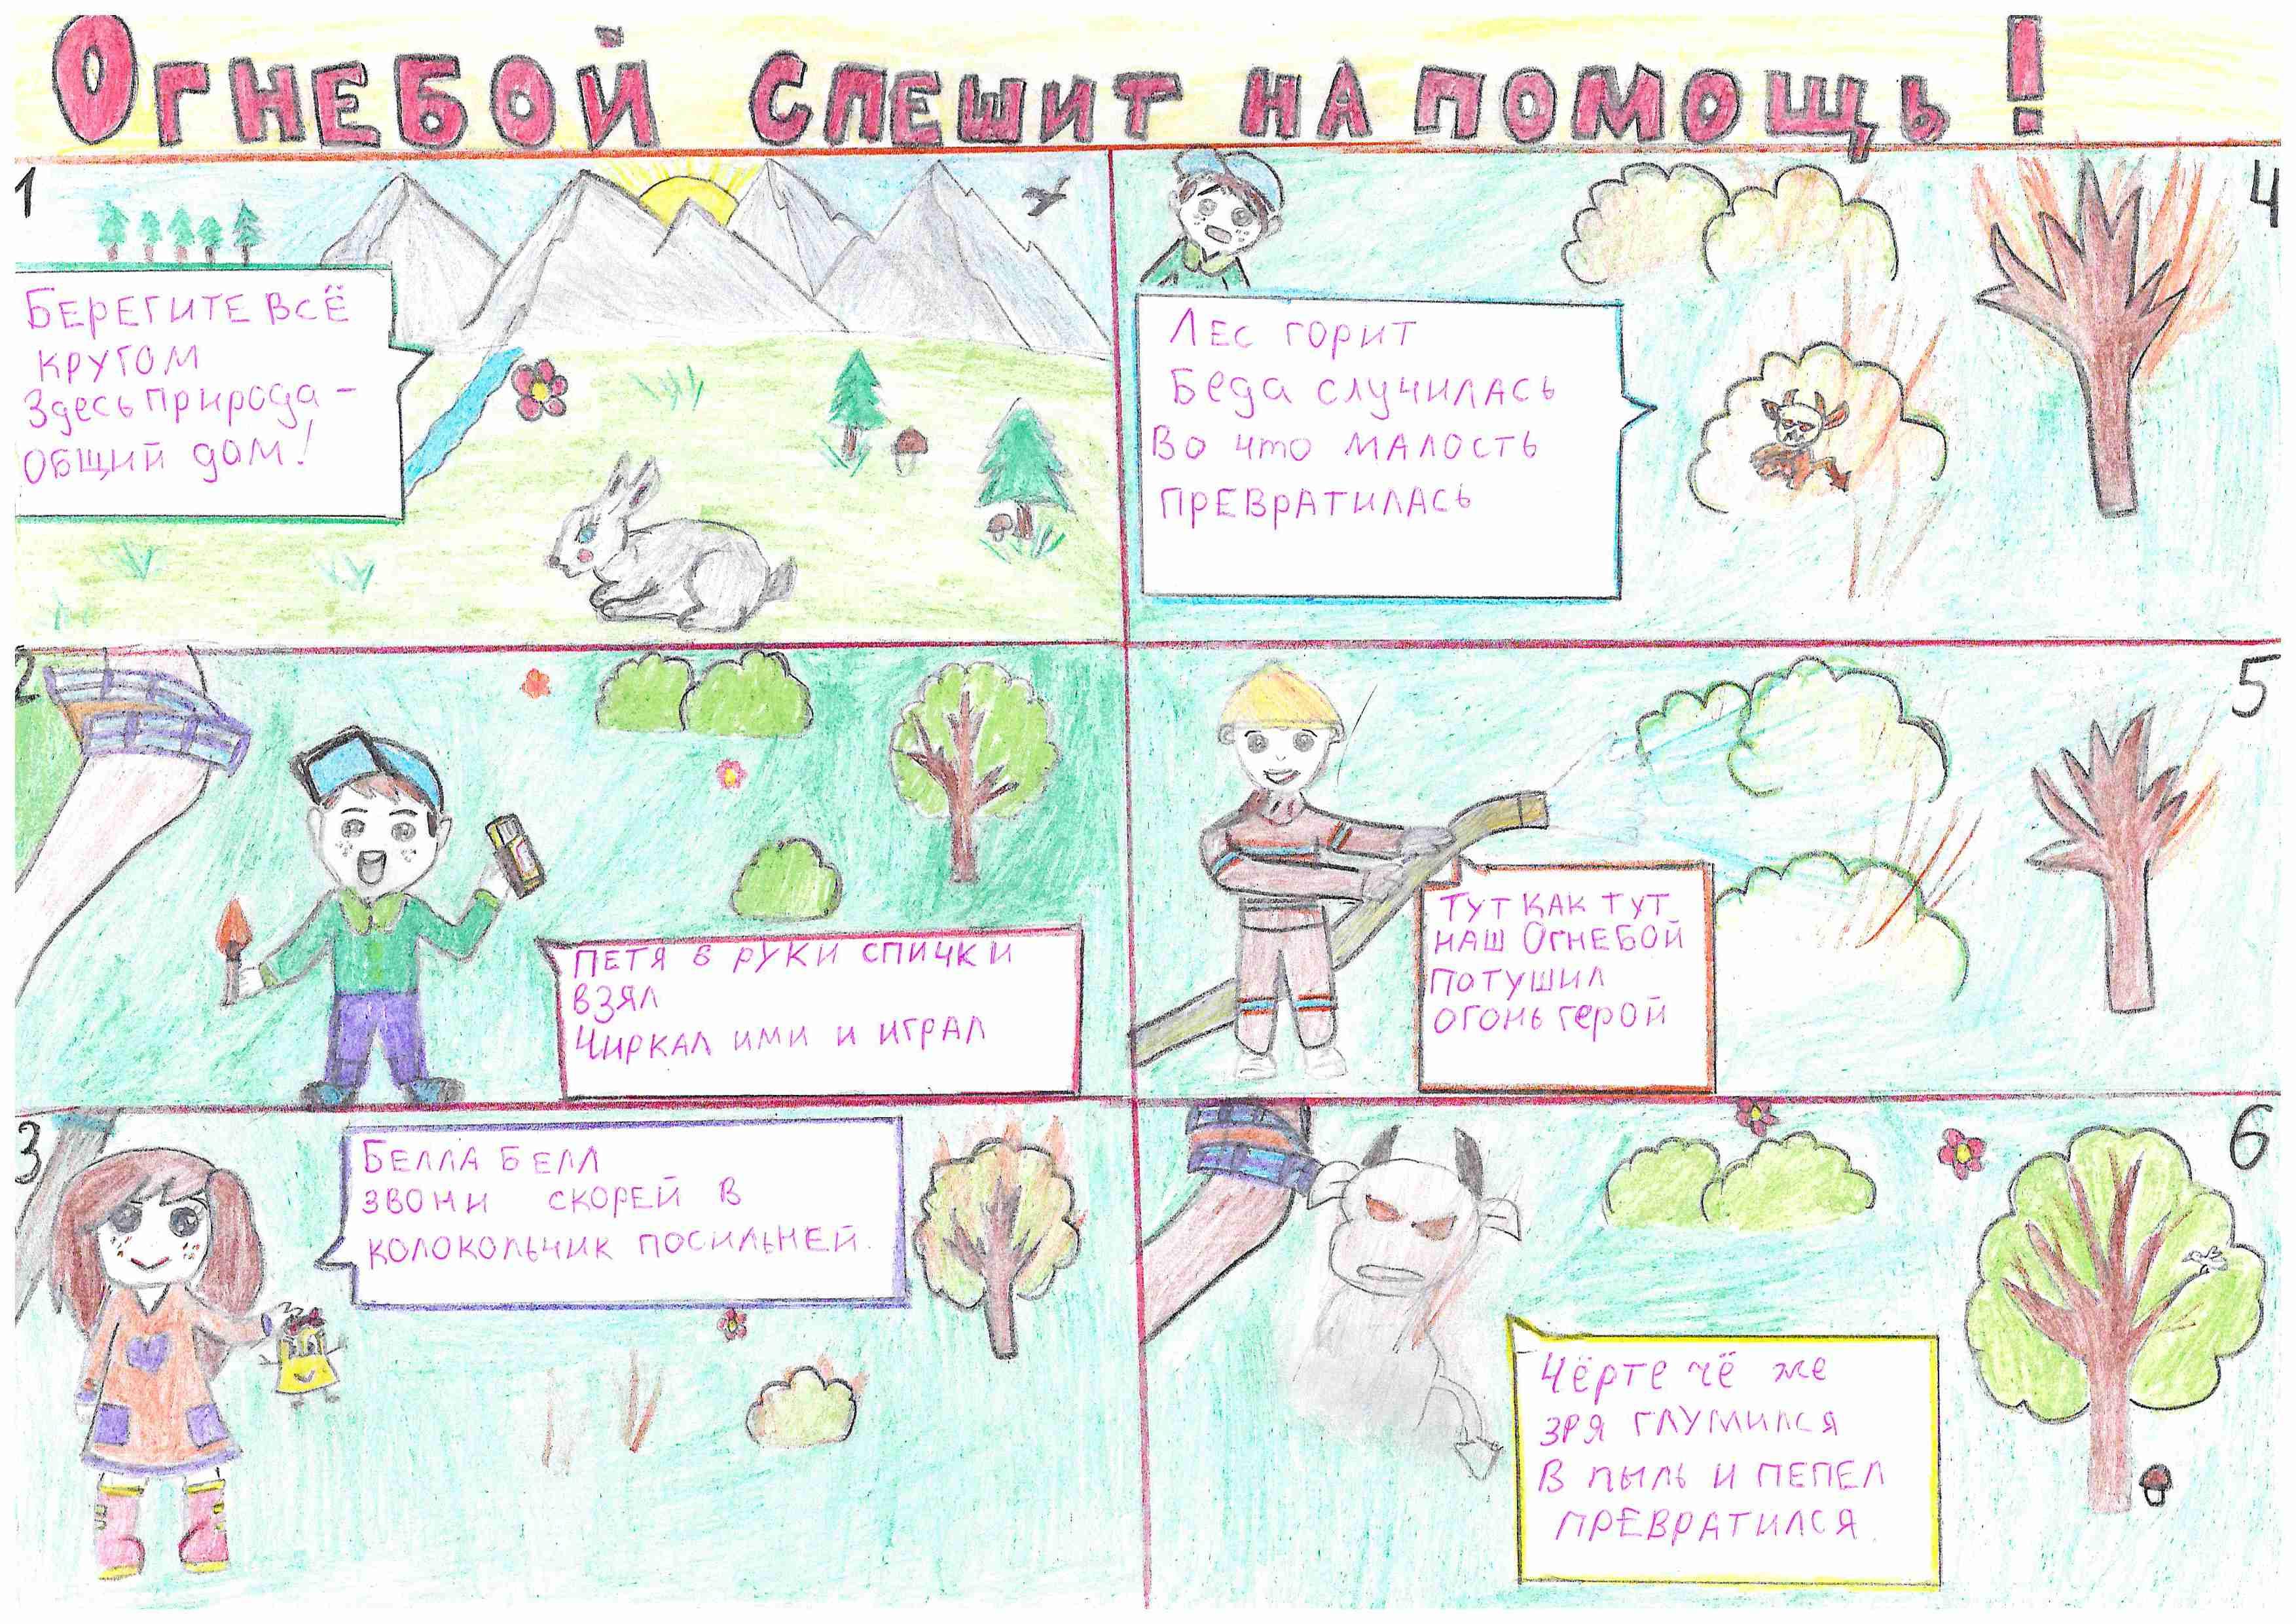 Огнебой спешит на помощь!
1
Берегите всё
кругом
Здесь природа –
общий дом!
2
Петя в руки спички
взял
Чиркал ими и играл
3
Белла Белл
звони скорей в
колокольчик посильней.
4
Лес горит
Беда случилась
Во что малость
превратилась
5
Тут как тут
наш Огнебой
потушил
огонь герой
6
Чёрте чё же
зря глумился
В пыль и пепел
превратился.